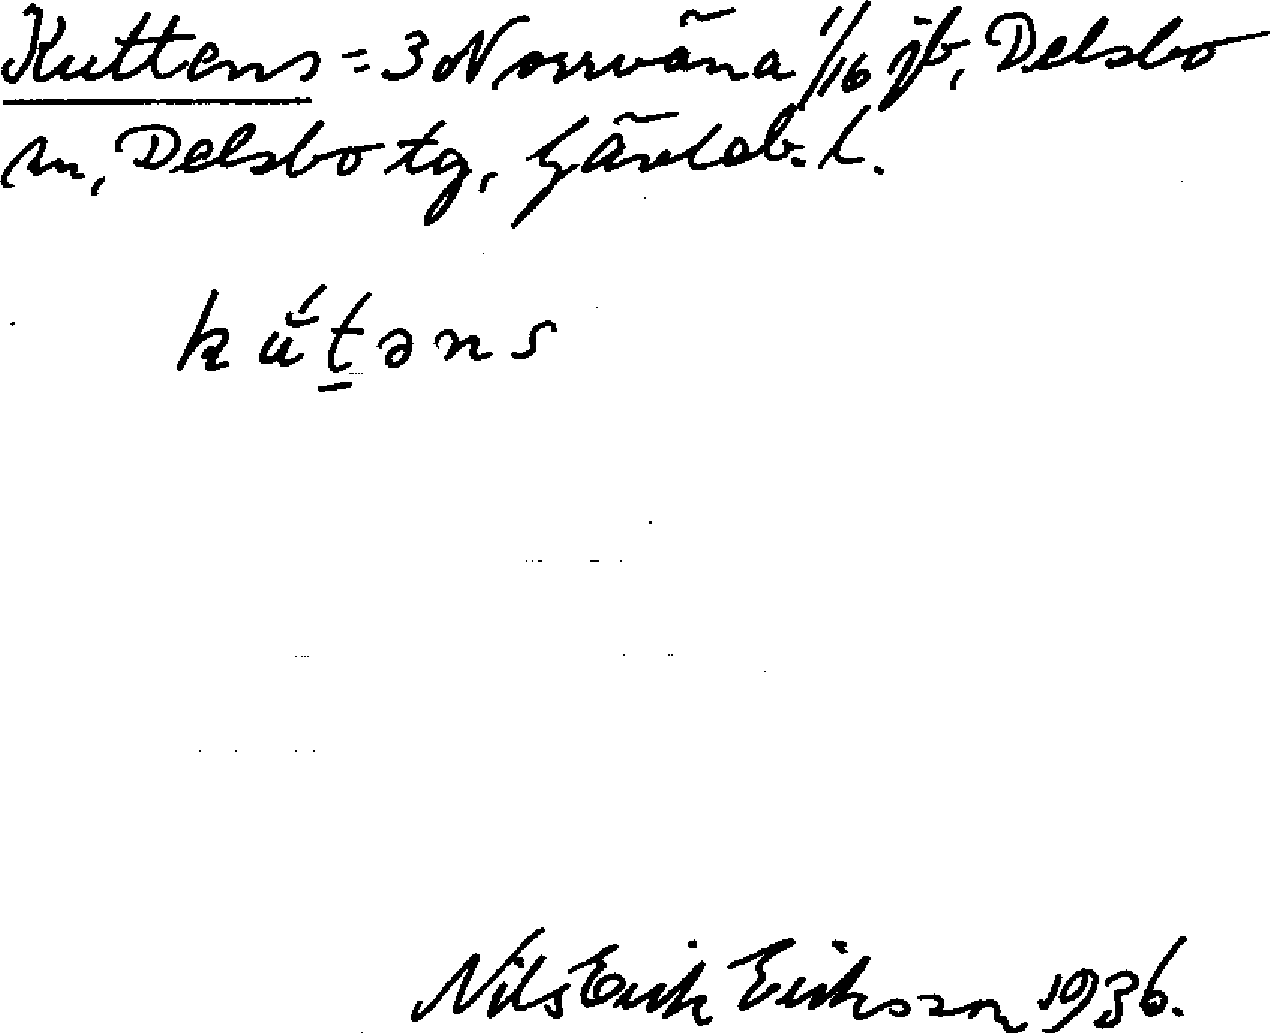 Kuttens = 3 Norrväna 1/16 jb, Delsbo
sn, Delsbo tg, Gävleb. l.
kŭ́t̠əns
Nils Erik Eriksson 1936.